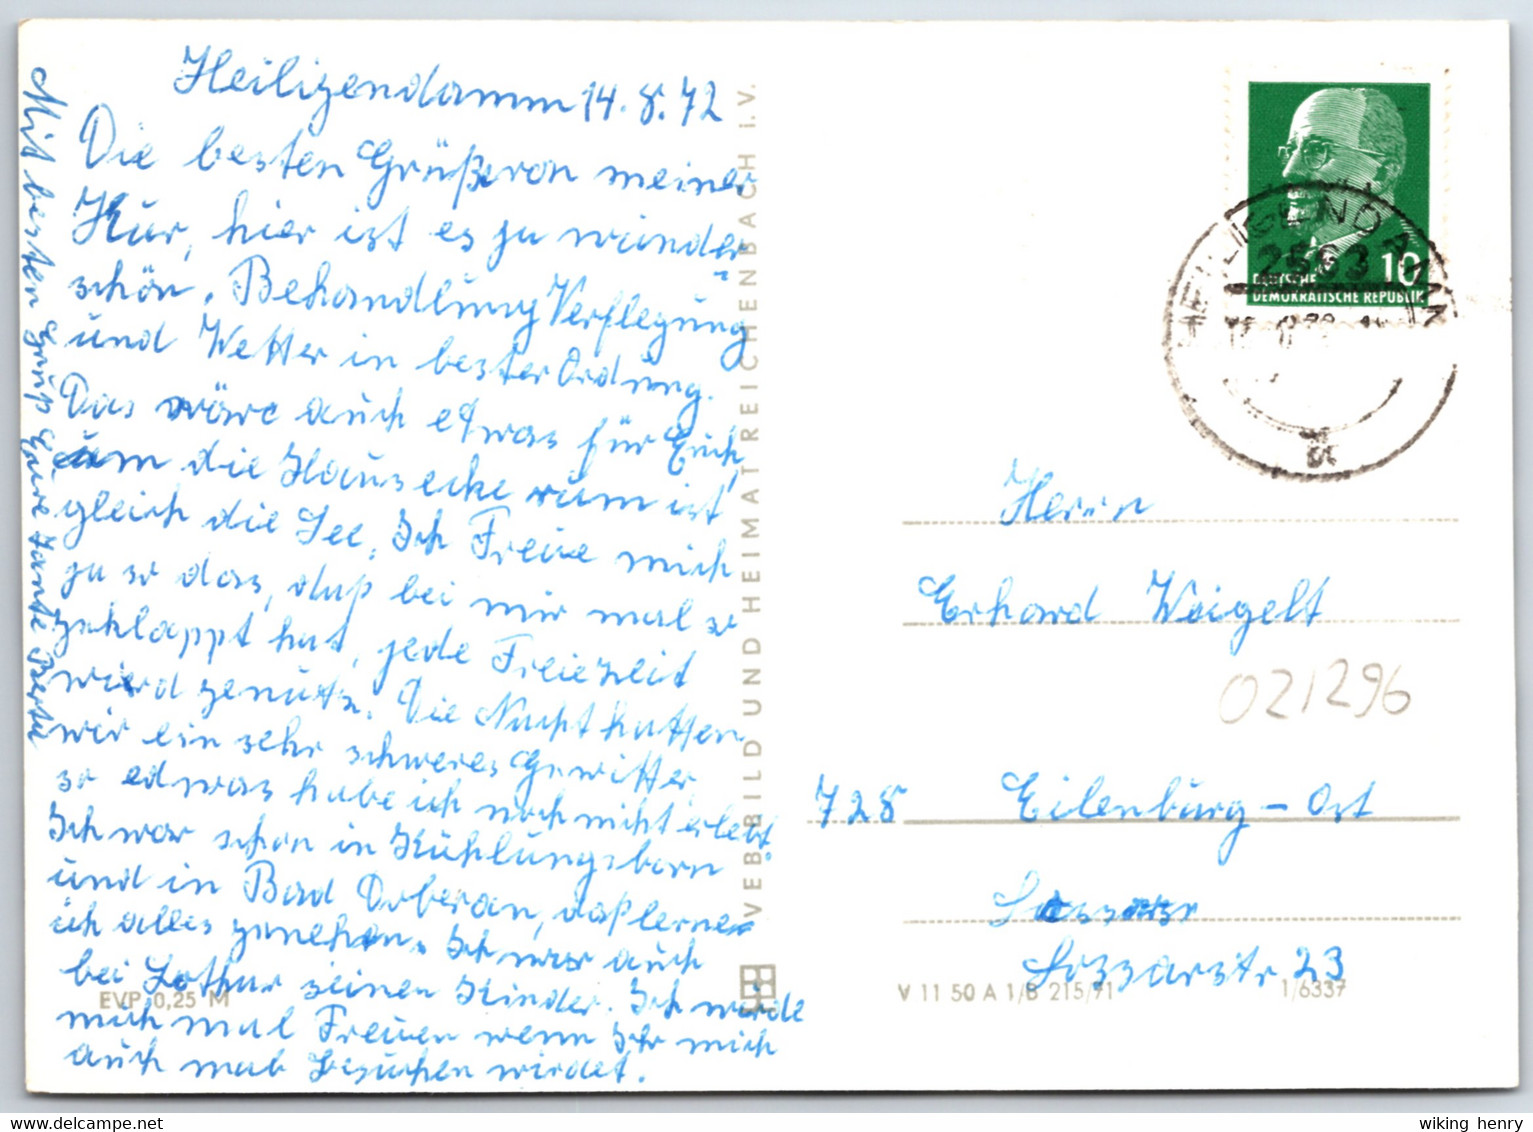 Heiligendamm 14.8.72
Die besten Grüße von meiner
Kur, hier ist es zu wunder
schön. Behandlung Verflegung
und Wetter in bester Ordnung.
Das wäre auch etwas für Euch,
um die Hausecke rum ist
gleich die See, Ich Freue mich
zu so das, daß bei mir mal so
geklappt hat, jede Freiezeit
wird genutz. Die Nacht hatten
wir ein sehr schweres Gewitter,
so edwas habe ich noch nicht erlebt.
Ich war schon in Kühlungsborn
und in Bad Doberan, daß lerne
ich alles
Ich war auch
bei Lothar seinen Kinder. Ich würde
mich mal Freuen wenn Ihr mich
auch mal besuchen würdet.
Mit besten Gruß Eure Tante Berta
EVP 0,25 M
VEB BILD UND HEIMAT REICHENBACH I. V.
V 11 50 A 1/B 215/71
1/6337
HEILIGENDAMM
2563
10
DEUTSCHE
DEMOKRATISCHE REPUBLIK
Herrn
Erhard Weigelt
021296
728 Eilenburg - Ost
23
wiking henry